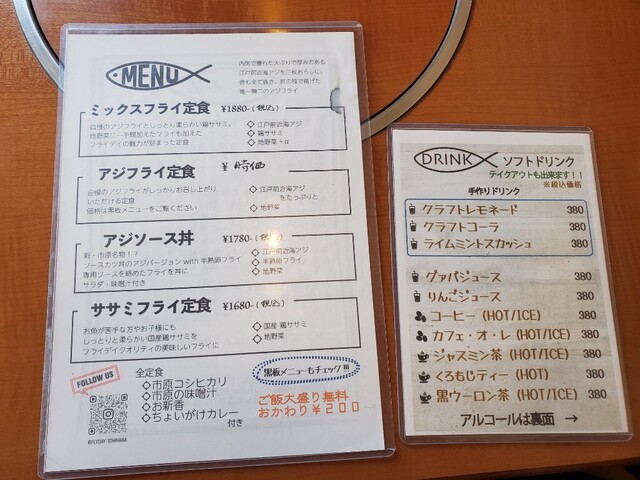 MENU
内房で獲れた大ぶりで厚みのある
江戸前近海アジを三枚おろしに。
骨も全て抜き、匠の技で揚げた
唯一無二のアジフライ
ミックスフライ定食 ¥1880-(税込)
自慢のアジフライとしっとり柔らかい鶏ササミ、
地野菜に一手間加えたフライも加えた
フライデイの魅力が詰まった定食
◇江戸前近海アジ
◇鶏ササミ
◇地野菜 +α
アジフライ定食 ¥ 時価
自慢のアジフライがしっかりお召し上がり
いただける定食
価格は黒板メニューをご覧ください
◇江戸前近海アジ
をたっぷりと
◇地野菜
アジソース丼 ¥1780-(税込)
新・市原名物！？
ソースカツ丼のアジバージョン with 半熟卵フライ
専用ソースを絡めたフライを丼に
サラダ・味噌汁付き
◇江戸前近海アジ
◇半熟卵フライ
◇地野菜
ササミフライ定食 ¥1680-(税込)
お魚が苦手な方やお子様にも
しっとりと柔らかい国産鶏ササミを
フライデイクオリティの美味しいフライに
◇国産 鶏ササミ
◇地野菜
黒板メニューもチェック!!!
FOLLOW US
全定食
◇市原コシヒカリ
◇市原の味噌汁
◇お新香
◇ちょいがけカレー
付き
ご飯大盛り無料
おかわり¥200
@FLYDAY_ICHIHARA
DRINK ソフトドリンク
テイクアウトも出来ます！！
※税込価格
手作りドリンク
クラフトレモネード 380
クラフトコーラ 380
ライムミントスカッシュ 380
グァバジュース 380
りんごジュース 380
コーヒー (HOT/ICE) 380
カフェ・オ・レ (HOT/ICE) 380
ジャスミン茶 (HOT/ICE) 380
くろもじティー (HOT) 380
黒ウーロン茶 (HOT/ICE) 380
アルコールは裏面 →